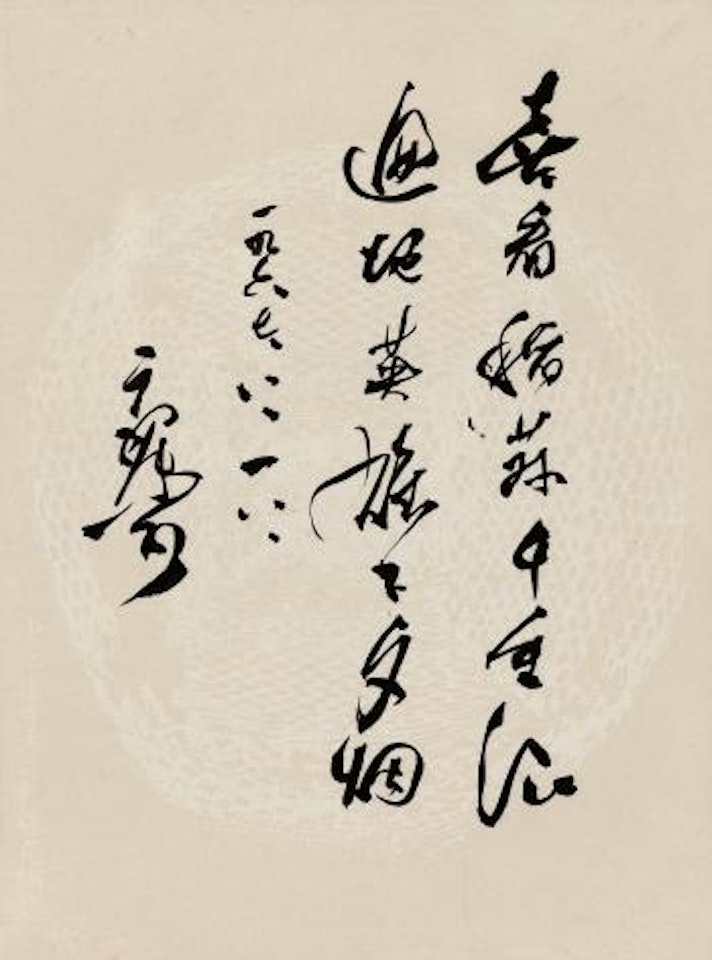 喜看稻菽千重浪
遍地英雄下夕烟
一九六七、八、一八、